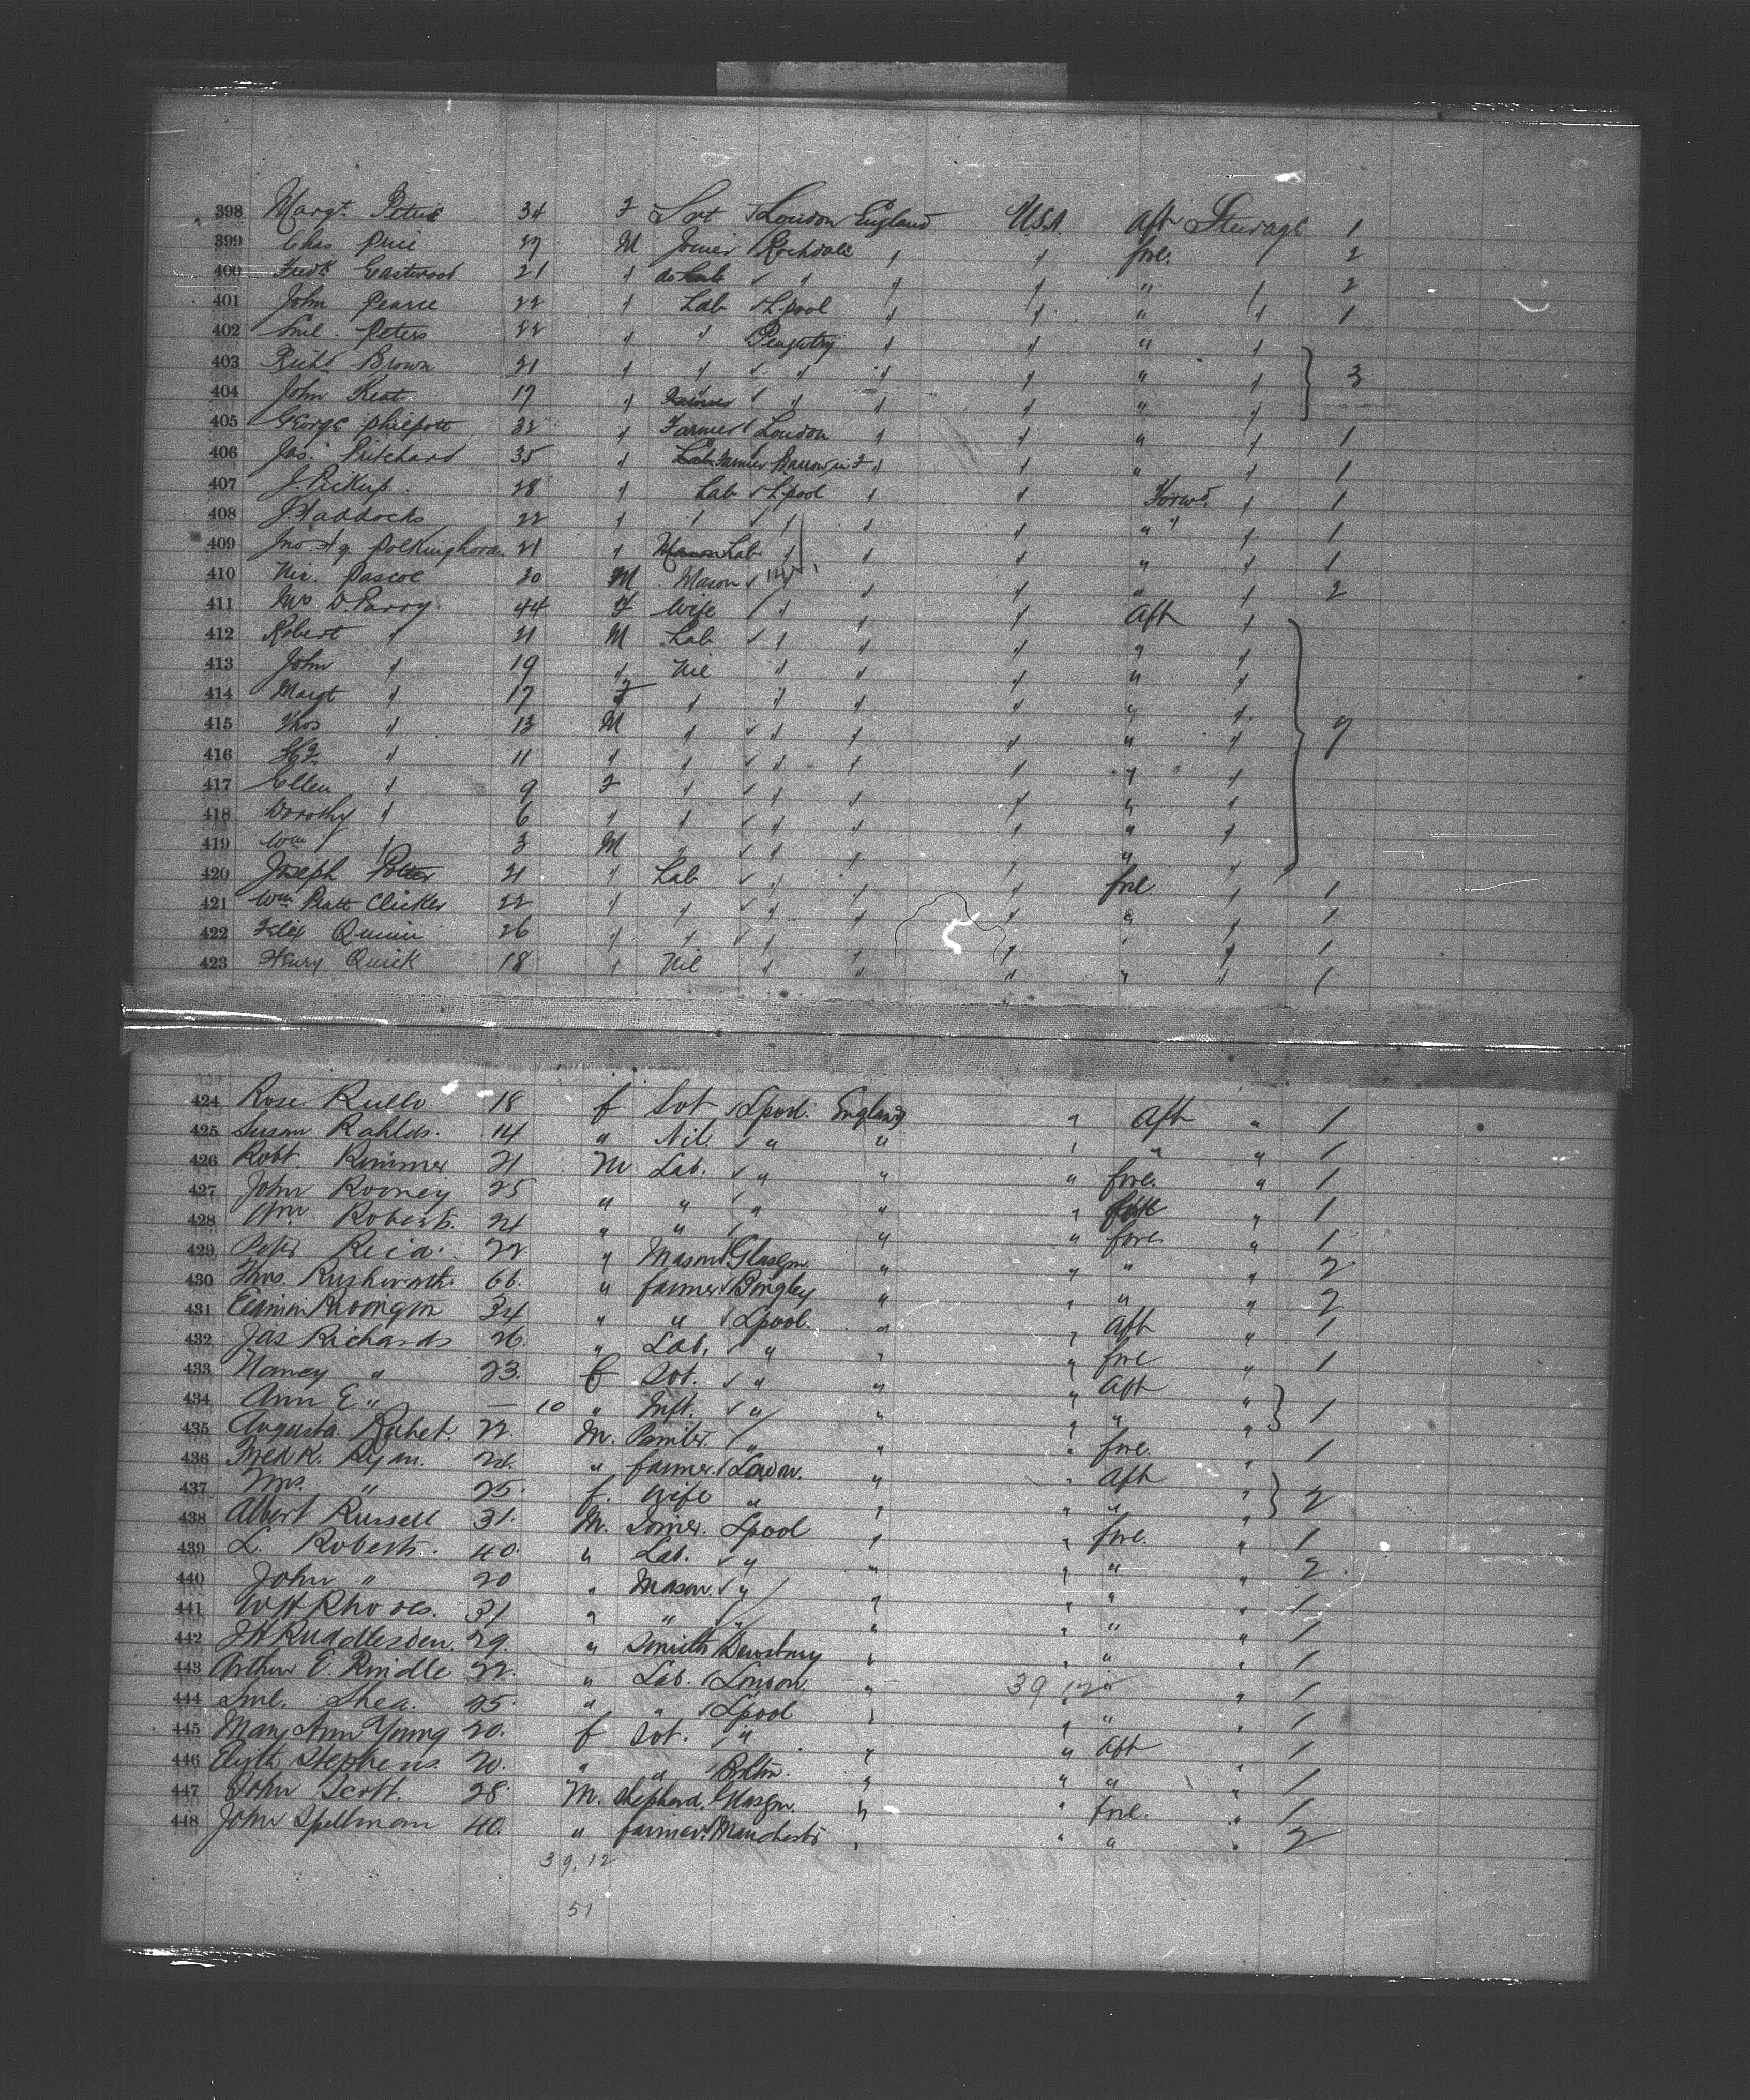 398 Margt. Petrie 34 F Svt London England U.S.A. Aft Steerage 1
399 Chas Price 27 M Joiner Rochdale " " fore. " 2
400 Fredk Eastwood 21 " do " " " " " 2
401 John Pearce 22 " Lab L.pool " " " " 1
402 Sml. Peters 22 " " " " " "
403 Richd Brown 21 " " " " " " " 3
404 John Keat 17 " " " " " "
405 George Philpott 32 " Farmer London " " " " 1
406 Jas. Pritchard 35 " Farmer Barrow in F " " " " 1
407 J. Pickup 28 " Lab L.pool " " Forwd. " 1
408 J Haddocks 22 " " " " " " " 1
409 Jno. Polkinghorn 21 " Lab " " " " " 1
410 Pascoe 20 M Mason " " " " " 2
411 Mrs D. Parry 44 F Wife " " " Aft "
412 Robert " 21 M Lab " " " " "
413 John " 19 " Nil " " " " "
414 Margt " 17 F " " " " " "
415 Thos " 13 M " " " " " " 9
416 " 11 " " " " " " "
417 Ellen " 9 F " " " " " "
418 Dorothy " 6 " " " " " " "
419 Wm " 3 M " " " " " "
420 Joseph Potter 21 " Lab " " " fore " 1
421 Wm Pratt Clicker 22 " " " " " " " 1
422 Felix Quinn 26 " " " " " " " 1
423 Henry Quick 18 " Nil " " " " " 1
424 Rose Rullo 18 f Svt Lpool. England " Aft " 1
425 Susan Rahlds. 14 " Nil. " " " " " 1
426 Robt. Rimmer 21 M Lab. " " " fore. " 1
427 John Rooney 25 " " " " " " 1
428 Wm. Roberts. 24 " " " " " fore " 1
429 Petr Reid. 22 " Mason Glasgow. " " " " 2
430 Thos. Rushworth 66. " farmer Bingley " " " " 2
431 34 " " Lpool. " " Aft " 1
432 Jas Richards 26. " Lab. " " " fore " 1
433 Nancy " 23. f Svt. " " " Aft "
434 Ann E " — 10 " Inft. " " " " " 1
435 Augusta. 22. M. " " " fore. " 1
436 Fredk. Ryan. 24. " farmer. London. " " Aft "
437 Mrs. " 25. f. Wife " " " " " 2
438 Albert Russell 31. M. Joiner. Lpool " " fore. " 1
439 L. Roberts. 40. " Lab. " " " " " 2.
440 John " 20 " Mason. " " " " " 1
441 W H Rhodes. 31 " " " " " " " 1
442 J H Ruddlesden. 29. " Smith Dewsbury " " " " 1
443 Arthur E. Rindle 22. " Lab. London. " 39 12 " " 1
444 Sml. Shea. 25. " " Lpool " " " " 1
445 Mary Ann Young 20. f Svt. " " " Aft 1
446 Elyth Stephens. 20. " " Bolton. " " " " 1
447 John Scott. 28. M. Shepherd. Glasgow. " " fore. " 1
448 John Spellman 40. " farmer. Manchester " " " " 2
39, 12
51